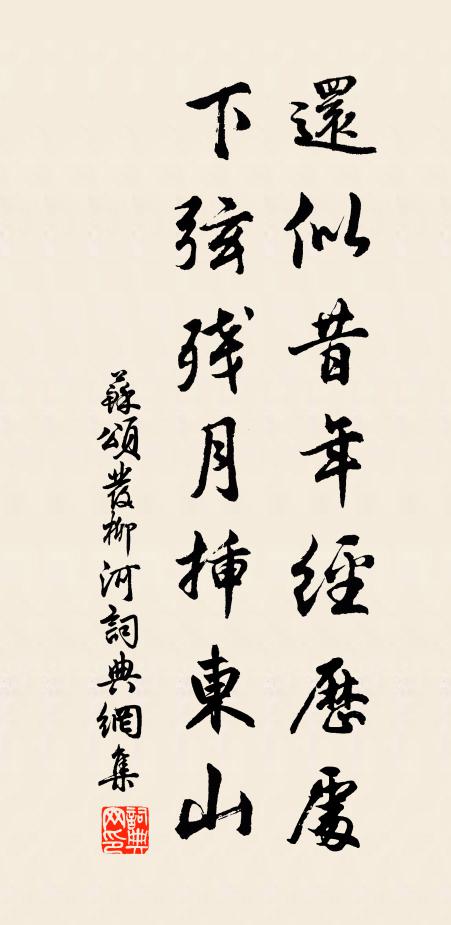 還似昔年經歷處
下弦残月揷東山
蘇頌發柳河詞典網集
詞典網印